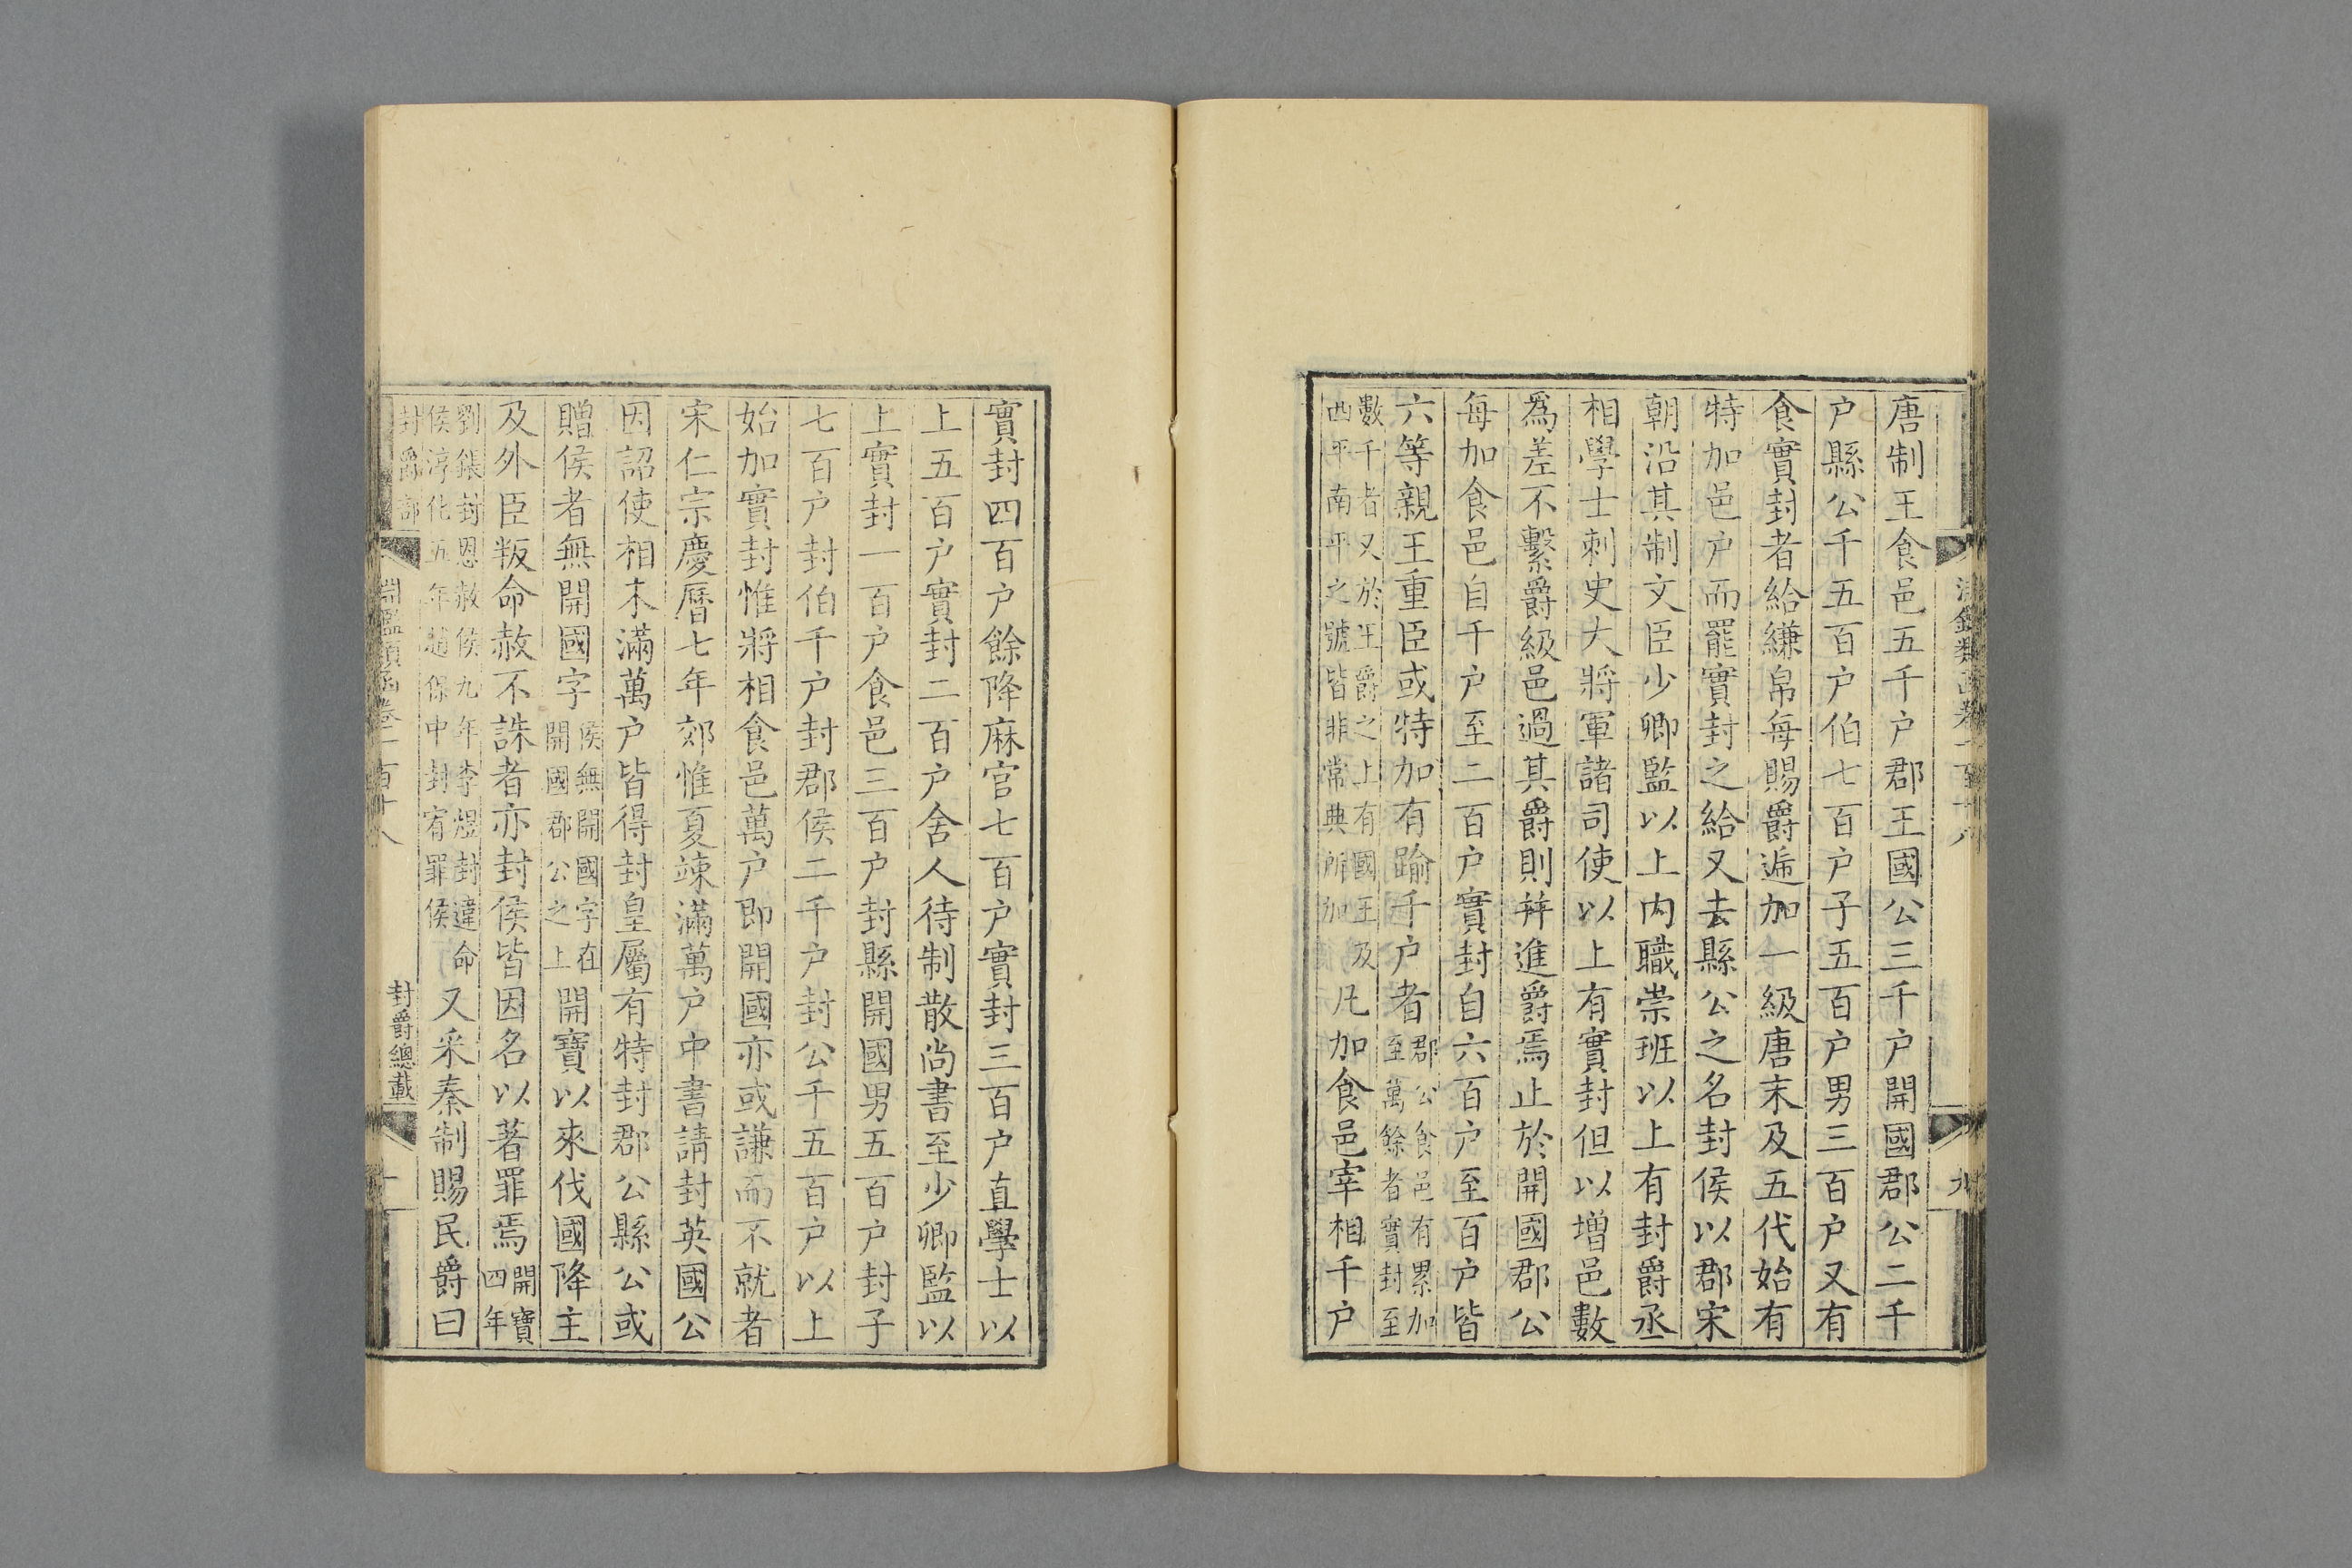 唐制王食邑五千户郡王國公三千户開國郡公二千
户縣公千五百户伯七百户子五百户男三百户又有
食實封者給縑帛每賜爵遞加一級唐末及五代始有
特加邑户而罷實封之給又去縣公之名封侯以郡宋
朝沿其制文臣少卿監以上内職崇班以上有封爵丞
相學士刺史大將軍諸司使以上有實封但以增邑數
爲差不繫爵級邑過其爵則幷進爵焉止於開國郡公
每加食邑自千户至二百户實封自六百户至百户皆
六等親王重臣或特加有踰千户者郡公食邑有累加至萬餘者實封至
數千者又於王爵之上有國王及西平南平之號皆非常典所加凡加食邑宰相千户
實封四百户餘降麻官七百户實封三百户直學士以
上五百户實封二百户舍人待制散尚書至少卿監以
上實封一百户食邑三百户封縣開國男五百户封子
七百户封伯千户封郡侯二千户封公千五百户以上
始加實封惟將相食邑萬户即開國亦或謙而不就者
宋仁宗慶曆七年郊惟夏竦滿萬户中書請封英國公
因詔使相未滿萬户皆得封皇屬有特封郡公縣公或
贈侯者無開國字侯無開國字在開國郡公之上開寶以來伐國降主
及外臣叛命赦不誅者亦封侯皆因名以著罪焉開寶四年
劉鋹封恩赦侯九年李煜封違命侯淳化五年趙保中封宥罪侯又釆秦制賜民爵曰
封爵部
淵鑑類函卷一百十八
封爵總載